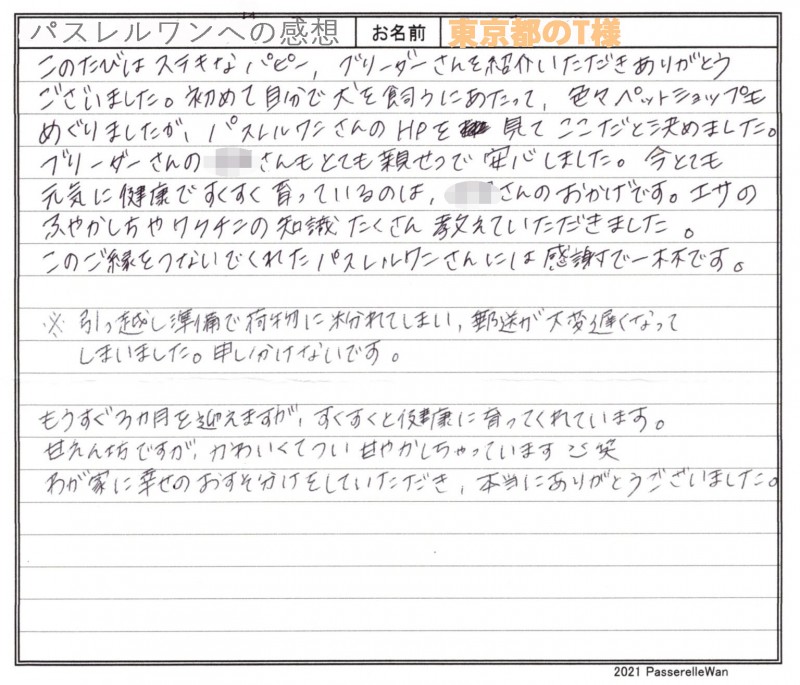 パスレルワンへの感想 お名前 東京都のT様
このたびは ステキな パピー, ブリーダーさんを紹介いただきありがとう
ございました。初めて自分で犬を飼うにあたって, 色々ペットショップも
めぐりましたが, パスレルワンさんのHPを 見て ここだと決めました。
ブリーダーさんの さんもとても親せつで安心しました。今とても
元気に健康ですくすく育っているのは, さんのおかげです。エサの
ふやかしちやワクチンの知識たくさん教えていただきました。
このご縁をつないでくれたパスレルワンさんには感謝で一杯です。
※ 引っ越し準備で荷物に紛れてしまい, 郵送が大変遅くなって
しまいました。申しわけないです。
もうすぐ3カ月を迎えますが, すくすくと健康に育ってくれています。
甘えん坊ですが, かわいくてつい甘やかしちゃっています 笑
わが家に幸せのおすそ分けをしていただき, 本当にありがとうございました。
2021 PasserelleWan